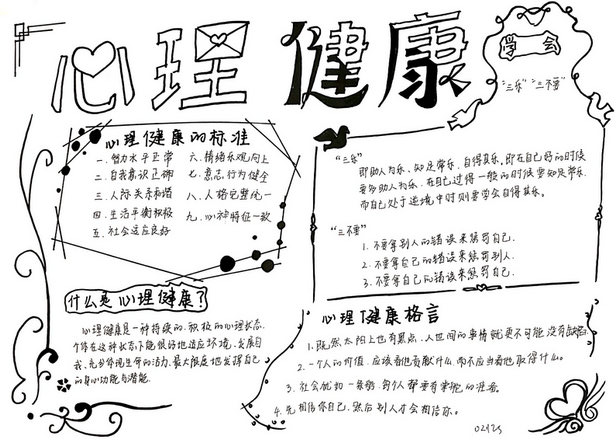 心理健康
学会
“三乐”“三不要”
心理健康的标准
一、智力水平正常
二、自我意识正确
三、人际关系和谐
四、生活平衡积极
五、社会适应良好
六、情绪乐观向上
七、意志行为健全
八、人格完整统一
九、心神特征一致
“三乐”
即助人为乐、知足常乐、自得其乐。即在自己好的时候
要多助人为乐，在自己过得一般的时候要知足常乐，
而自己处于逆境中时则要学会自得其乐。
“三不要”
1. 不要拿别人的错误来惩罚自己.
2. 不要拿自己的错误来惩罚别人.
3. 不要拿自己的错误来惩罚自己.
什么是心理健康?
心理健康是一种持续的、积极的心理状态，
个体在这种状态下能很好地适应环境，发展自
我，充分体现生命的活力，最大限度地发挥自己
的身心功能与潜能.
心理健康格言
1. 既然太阳上也有黑点，人世间的事情就更不可能没有缺陷。
2. 一个人的价值，应该看他贡献什么，而不应当看他取得什么。
3. 社会犹如一条船，每个人都要有掌舵的准备。
4. 先相信你自己，然后别人才会相信你。